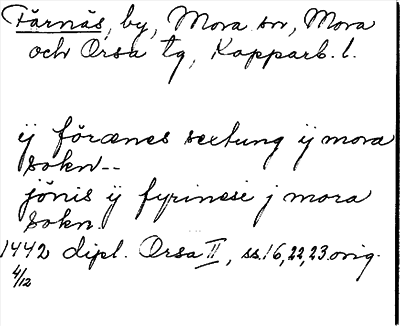 Färnäs, by, Mora sn, Mora
och Orsa tg, Kopparb. l.
ij förænes sextung ij mora
sokn--
jönis ij fyrinese j mora
sokn.
1442 dipl. Orsa II, ss. 16, 22, 23. orig.
4/12